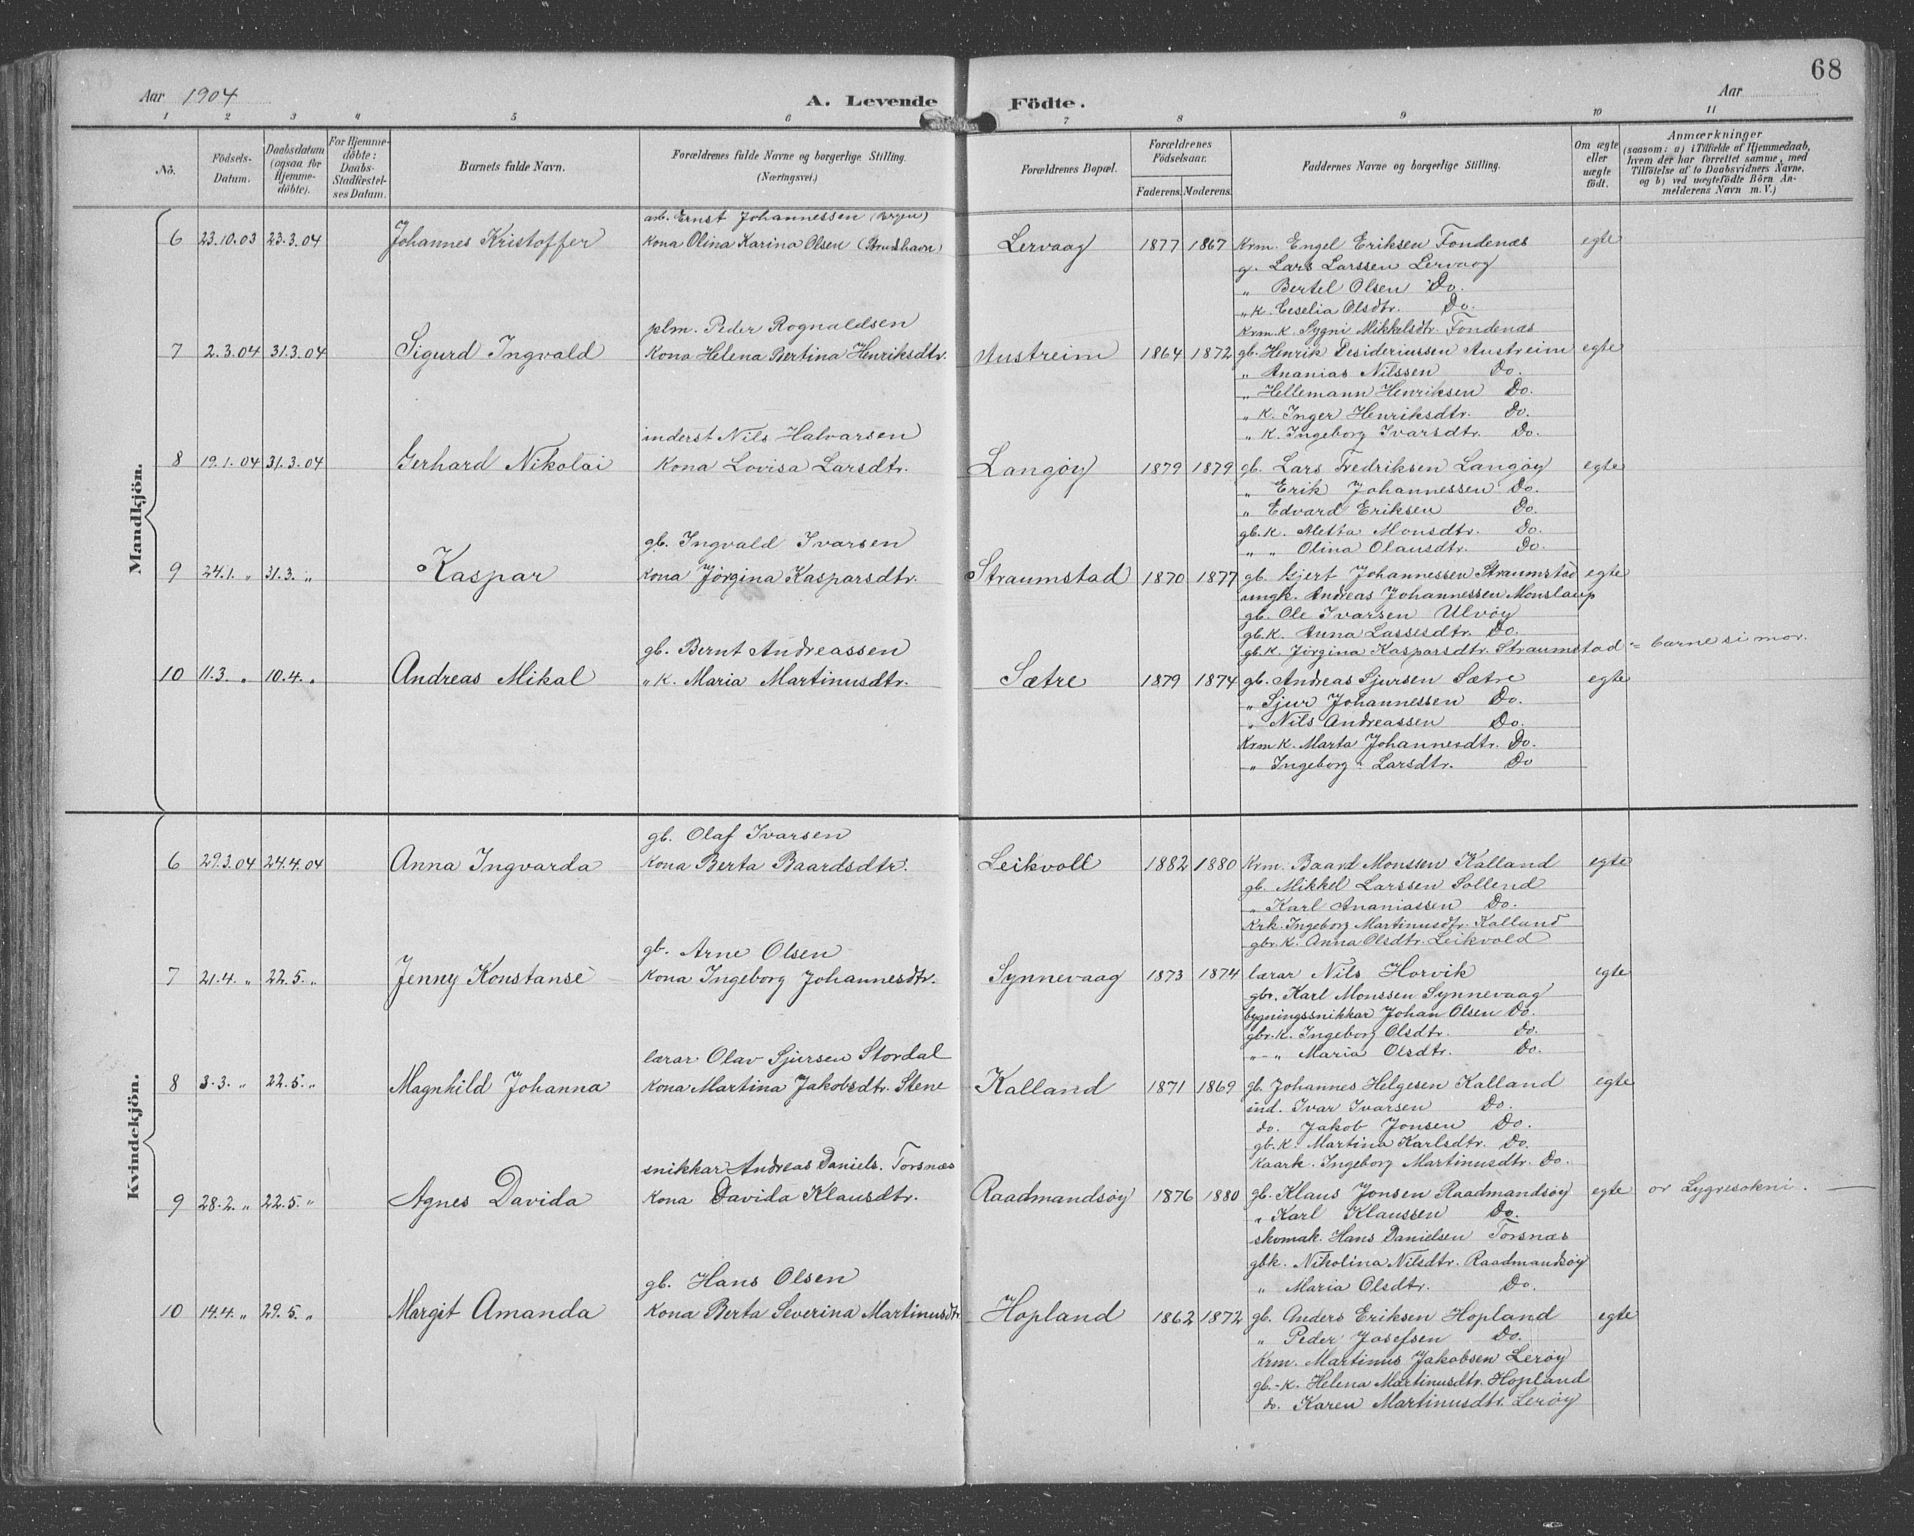 68
Aar 1904
A. Levende Födte.
Aar
1 2 3 4 5 6 7 8 9 10 11
No.
Födsels-Datum.
Daabsdatum (ogsaa for Hjemmedöbte).
For Hjemmedöbte: Daabs-Stadfæstelses Datum.
Barnets fulde Navn.
Forældrenes fulde Navne og borgerlige Stilling. (Næringsvei.)
Forældrenes Bopæl.
Forældrenes Födselsaar.
Faderens. Moderens.
Faddernes Navne og borgerlige Stilling.
Om ægte eller uægte födt.
Anmærkninger
(saasom: a) i Tilfælde af Hjemmedaab, hvem der har forrettet samme, med Tilföielse af to Daabsvidners Navne, og b) ved uægtefödte Börn Anmelderens Navn m. V.)
Mandkjön.
arb. Ernst Johannessen (Bergen)
6 23.10.03 23.3.04 Johannes Kristoffer Kona Olina Karina Olsen Lervaag 1877 1867 Krm. Engel Eriksen Fondenæs egte
g. Lars Larssen Lervaag
„ Bertel Olsen Do.
„ K. Ceselia Olsdtr. Do.
Krm. K. Sygni Mikkelsdtr. Fondenæs
plm. Peder Rognaldsen
7 2.3.04 31.3.04 Sigurd Ingvald Kona Helena Bertina Henriksdtr. Austreim 1864 1872 gb. Henrik Desideriussen Austreim egte
„ Ananias Nilssen Do.
„ Hellemann Henriksen Do.
„ K. Inger Henriksdtr. Do.
„ K. Ingeborg Ivarsdtr. Do.
inderst Nils Halvarsen
8 19.1.04 31.3.04 Gerhard Nikolai Kona Lovisa Larsdtr. Langøy 1879 1879 gb. Lars Fredriksen Langøy egte
„ Erik Johannessen Do.
„ Edvard Eriksen Do.
gb. K. Metta Monsdtr. Do.
„ „ Olina Olausdtr. Do.
gb. Ingvald Ivarsen
9 24.1. „ 31.3. „ Kaspar Kona Jörgina Kasparsdtr. Straumstad 1870 1877 gb. Gjert Johannessen Straumstad egte
ungk. Andreas Johannessen Monslaup
gb. Ole Ivarsen Ulvøy
gb. K. Anna Lassesdtr. Do.
gb. K. Jörgina Kasparsdtr. Straumstad = barne si mor.
gb. Bernt Andreassen
10 11.3. „ 10.4. „ Andreas Mikal „ K. Maria Martinusdtr. Sætre 1879 1874 gb. Andreas Sjursen Sætre egte
„ Sjur Johannessen Do.
„ Nils Andreassen Do.
Krm K. Marta Johannesdtr. Do.
„ Ingeborg Larsdtr. Do
Kvindekjön.
gb. Olaf Ivarsen
6 29.3.04 24.4.04 Anna Ingvarda Kona Berta Baardsdtr. Leikvoll 1882 1880 Krm. Baard Monssen Kalland egte
gb. Mikkel Larssen Sollend
„ Karl Ananiassen Do.
Krk. Ingeborg Martinusdtr. Kalland
gbr. K. Anna Olsdtr. Leikvold
gb. Arne Olsen
7 21.4. „ 22.5. „ Jenny Konstanse Kona Ingeborg Johannesdtr. Synnevaag 1873 1874 lærar Nils Horvik egte
gbr. Karl Monssen Synnevaag
bygningssnikkar Johan Olsen Do.
gbr. K. Ingeborg Olsdtr. Do.
„ „ Maria Olsdtr. Do.
lærar Olav Sjursen Stordal
8 3.3. „ 22.5. „ Magnhild Johanna Kona Martina Jakobsdtr. Stene Kalland 1871 1869 gb. Johannes Helgesen Kalland egte
ind. Ivar Ivarsen Do.
do. Jakob Jonsen Do.
gb. K. Martina Karlsdtr. Do.
Kaark. Ingeborg Martinusdtr. Do.
snikkar Andreas Daniels. Torsnæs
9 28.2. „ 22.5. „ Agnes Davida Kona Davida Klausdtr. Raadmandsøy 1876 1880 gb. Klaus Jonsen Raadmandsøy egte or Lygresokni.
„ Karl Klaussen Do.
skomak. Hans Danielsen Torsnæs
gbk. Nikolina Nilsdtr. Raadmandsøy
„ Maria Olsdtr. Do.
gb. Hans Olsen
10 14.4. „ 29.5. „ Margit Amanda Kona Berta Severina Martinusdtr Hopland 1862 1872 gb. Anders Eriksen Hopland egte
„ Peder Josefsen Do.
Krm. Martinus Jakobsen Lerøy
gb.-K. Helena Martinusdtr. Hopland
do. Karen Martinusdtr. Lerøy